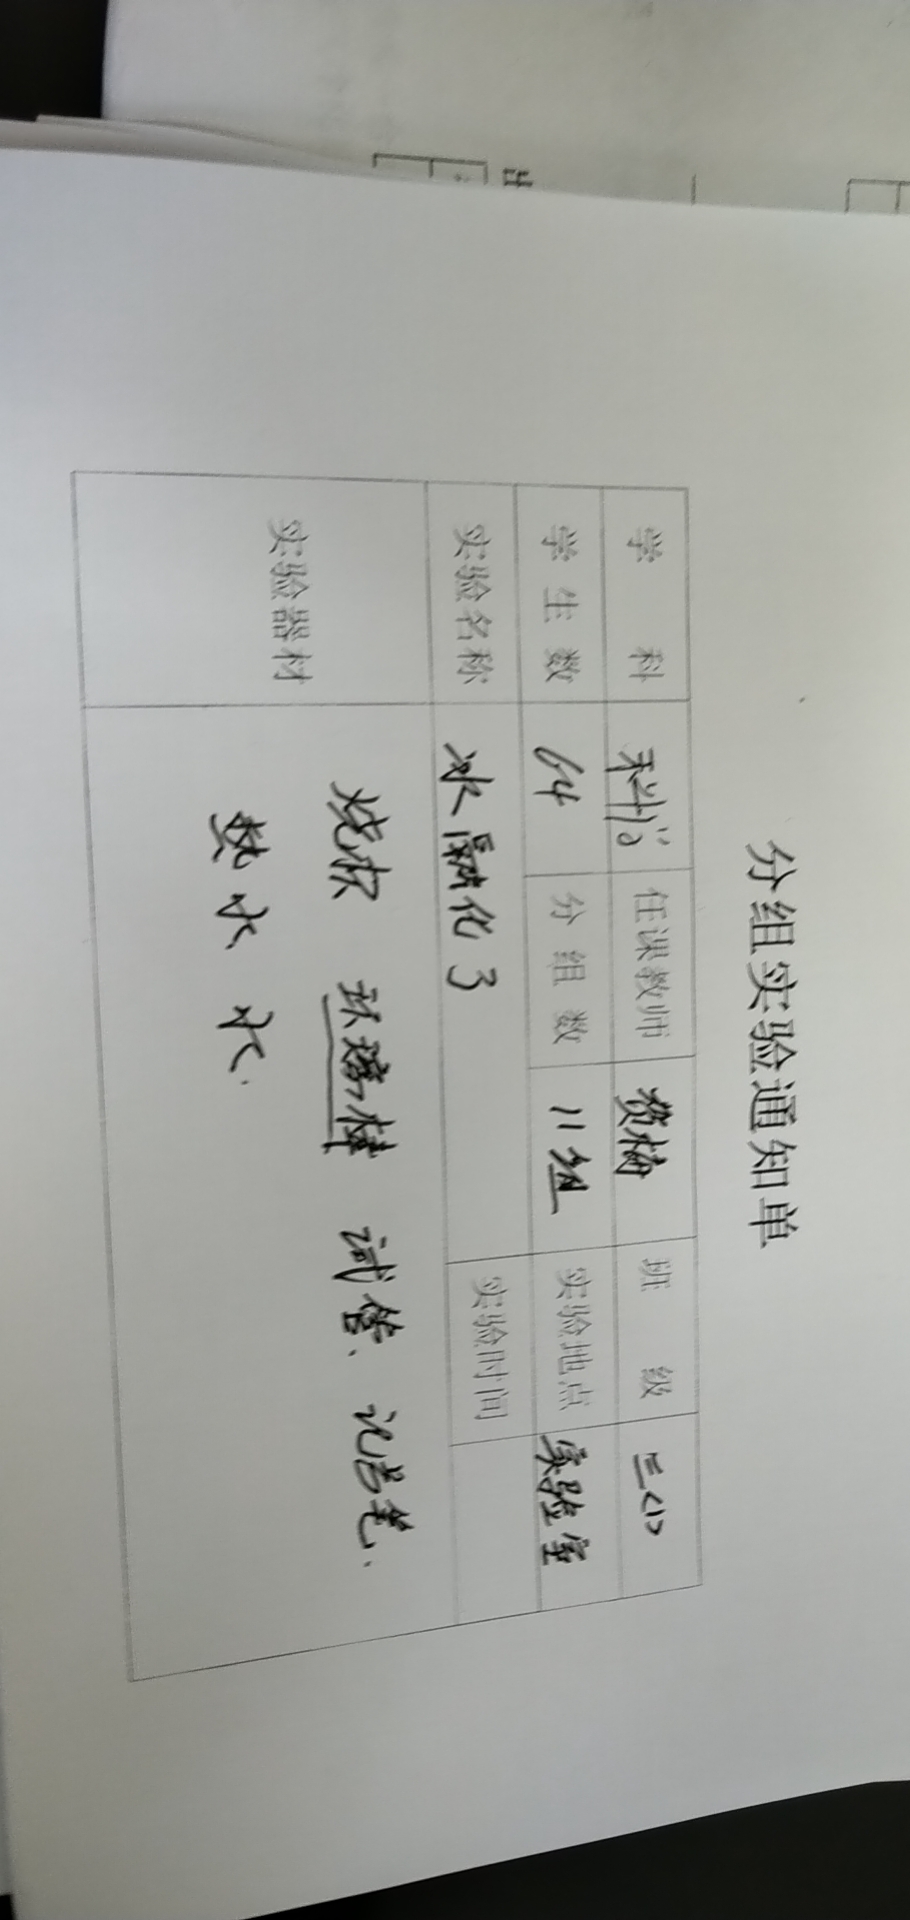 分组实验通知单
学科 科学 任课教师 贺梅 班级 三<1>
学生数 64 分组数 11组 实验地点 实验室
实验名称 冰融化了 实验时间
实验器材 烧杯 玻璃棒 试管、记号笔.
热水 冰.